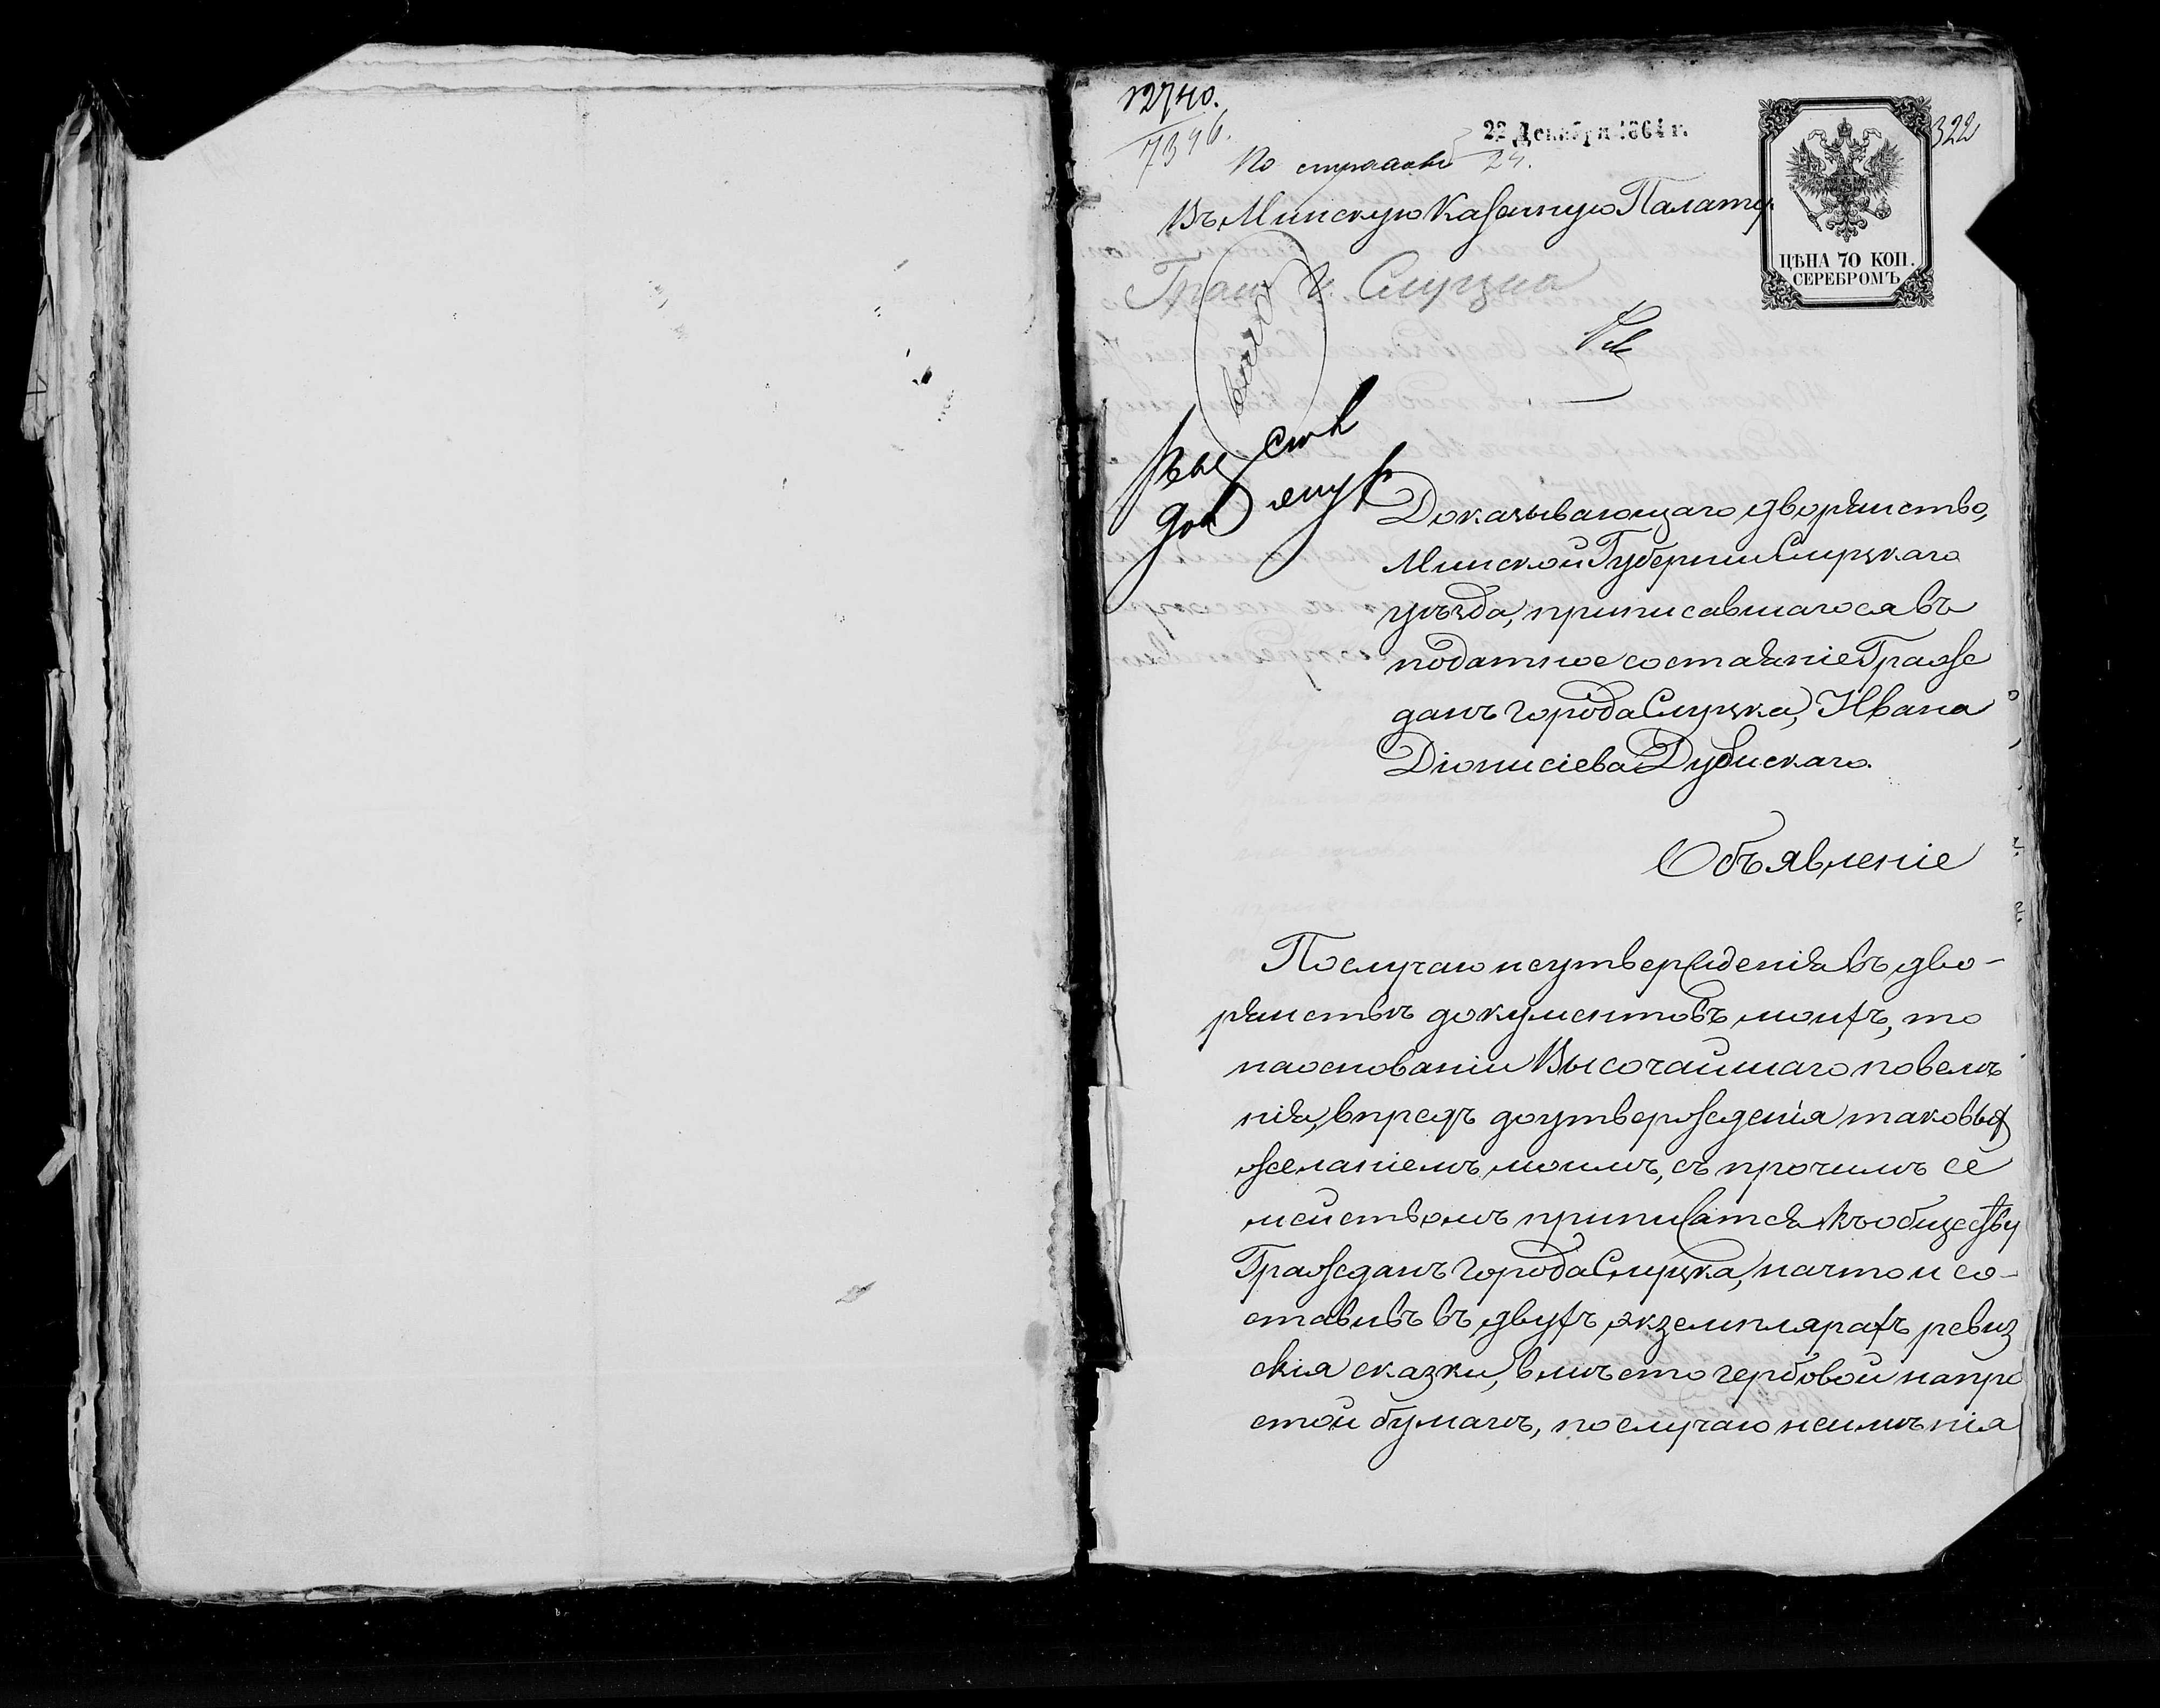 12740.
7396.
22 Декабря 1864 г.
322
24.
Въ Минскую Казенную Палату
ЦѢНА 70 КОП.
СЕРЕБРОМЪ
Граж г. Слуцка
Доказывающаго дворянство,
Минской Губерніи Слуцкаго
уѣзда, приписавшагося въ
податное состояніе Граж
данъ города Слуцка, Ивана
Діонисіева Дубискаго.
Объявленіе
По случаю неутвержденія въ дво-
рянствѣ документовъ моихъ, то
на основаніи Высочайшаго повелѣ
нія, впредь до утвержденія таковыя
желаніемъ моимъ, съ прочимъ се
мействомъ приписатся къ обществу
Гражданъ города Слуцка, на что и со-
ставивъ въ двухъ экземплярахъ ревиз
скія сказки, вмѣсто гербовой на про
стой бумагѣ, по случаю неимѣнія